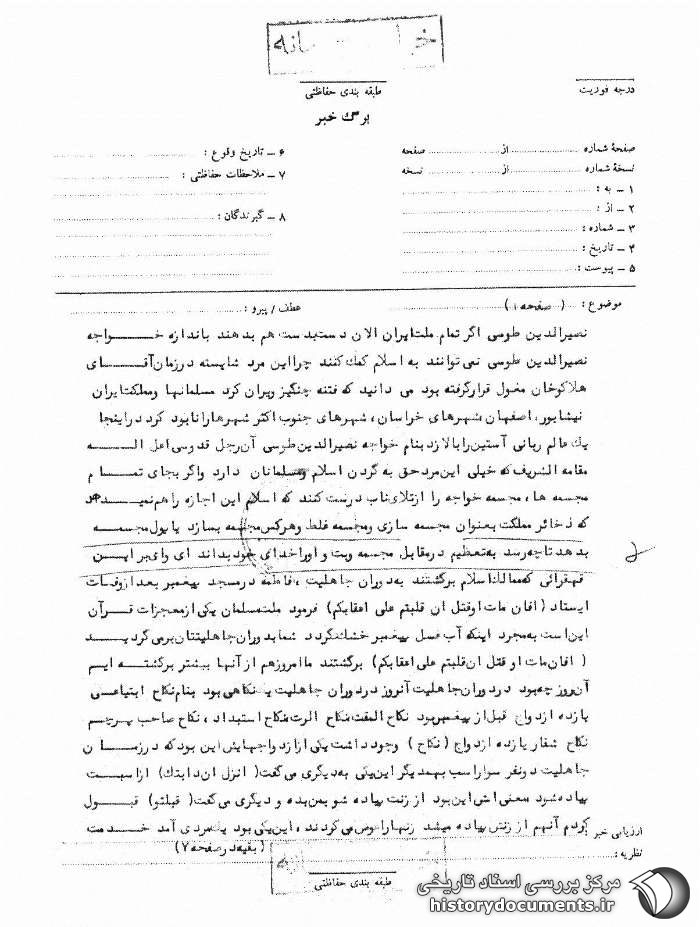 خیلی محرمانه
درجه فوریت
طبقه بندی حفاظتی
برگ خبر
صفحهٔ شماره ........ از ........ صفحه
نسخهٔ شماره ........ از ........ نسخه
۱ ـ به :
۲ ـ از :
۳ ـ شماره :
۴ ـ تاریخ :
۵ ـ پیوست :
۶ ـ تاریخ وقوع :
۷ ـ ملاحظات حفاظتی :
۸ ـ گیرندگان :
موضوع : ( صفحه ۱ )
عطف / پیرو :
نصیرالدین طوسی اگر تمام ملت ایران الان دست بدست هم بدهند باندازه خــواجه
نصیرالدین طوسی نمی توانند به اسلام کمک کنند چرا این مرد شایسته در زمان آقــای
هلاکوخان مغول قرار گرفته بود می دانید که فتنه چنگیز ویران کرد مسلمانها و مملکت ایران
نیشابور، اصفهان، شهرهای خراسان، شهرهای جنوب اکثر شهرها را نابود کرد در اینجا
یک عالم ربانی آستین را بالا زد بنام خواجه نصیرالدین طوسی آن رجل قدوسی اعل اللــه
مقامه الشریف که خیلی این مرد حق به گردن اسلام و مسلمانان دارد و اگر بجای تمــام
مجسمه ها، مجسمه خواجه را از طلای ناب درست کنند که اسلام این اجازه را هم نمیدهد
که ذخائر مملکت بعنوان مجسمه سازی و مجسمه غلط و هرکس مجسمه بسازد یا پول مجسمــه
بدهد تا چه رسد به تعظیم در مقابل مجسمه وبت و او را خدای خود بداند ای وای بر ایــن
قهقرائی که ممالک اسلام برگشتند به دوران جاهلیت، فاطمه در مسجد پیغمبر بعد از وفات
ایستاد (افان مات اوقتل ان قلبتم علی اعقابکم) فرمود ملت مسلمان یکی از معجزات قــرآن
این است به مجرد اینکه آب غسل پیغمبر خشک نگردد شما بدوران جاهلیتتان برمی گردیــد
( افان مات او قتل ان قلبتم علی اعقابکم) برگشتند ما امروز هم از آنها بیشتر برگشتــه ایم
آن روز چه بود در دوران جاهلیت آنروز در دوران جاهلیت یک نکاهی بود بنام نکاح ابتیاعــی
یازده ازدواج قبل از پیغمبر بود نکاح المقت نکاح الرث نکاح استبداد، نکاح صاحب پرچــم
نکاح شغار یازده ازدواج (نکاح ) وجود داشت یکی از ازدواجهایش این بود که در زمــان
جاهلیت دو نفر سوار اسب بهمدیگر این یکی به دیگری می گفت( انزل ان دابتک) از اسبت
پیاده شود معنی اش این بود از زنت پیاده شو بمن بده و دیگری می گفت( قبلتو) قبــول
کردم آنهم از زنش پیاده میشد زنها را عوض می کردند، این یکی بود یک مردی آمد خــدمت
( بقیه در صفحه ۲)
ارزیابی خبر
نظریه :
طبقه بندی حفاظتی
مرکز بررسی اسناد تاریخی
historydocuments.ir